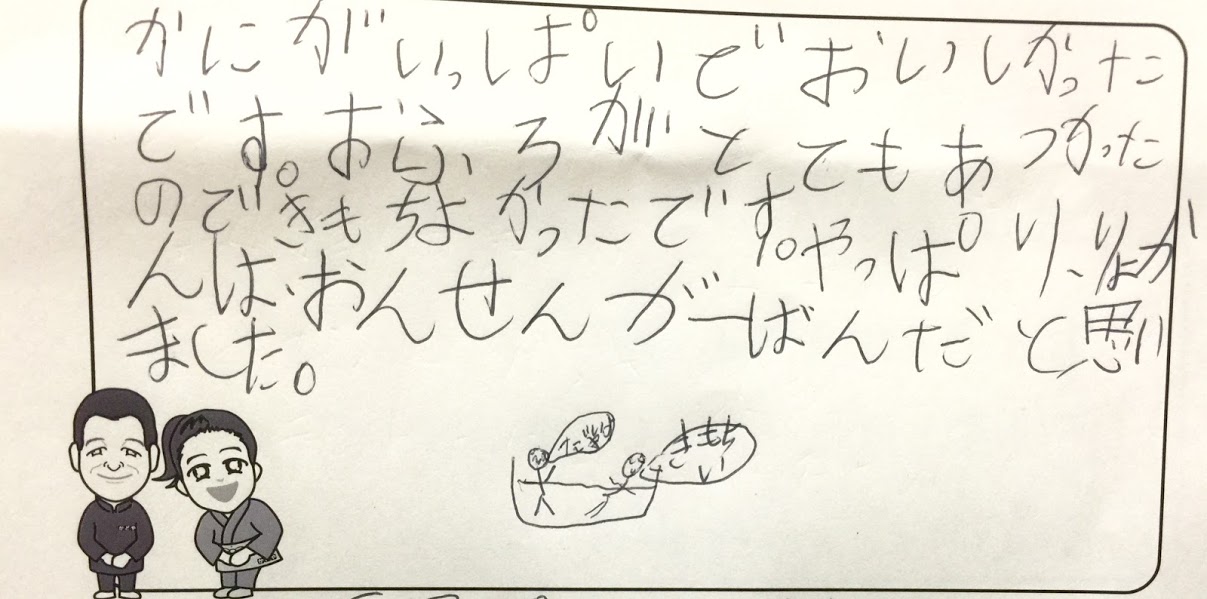 かにがいっぱいでおいしかった
です。おふろがとてもあつかった
のできもちよかったです。やっぱり、りょか
んは、おんせんが一ばんだと思い
ました。
きもち
い